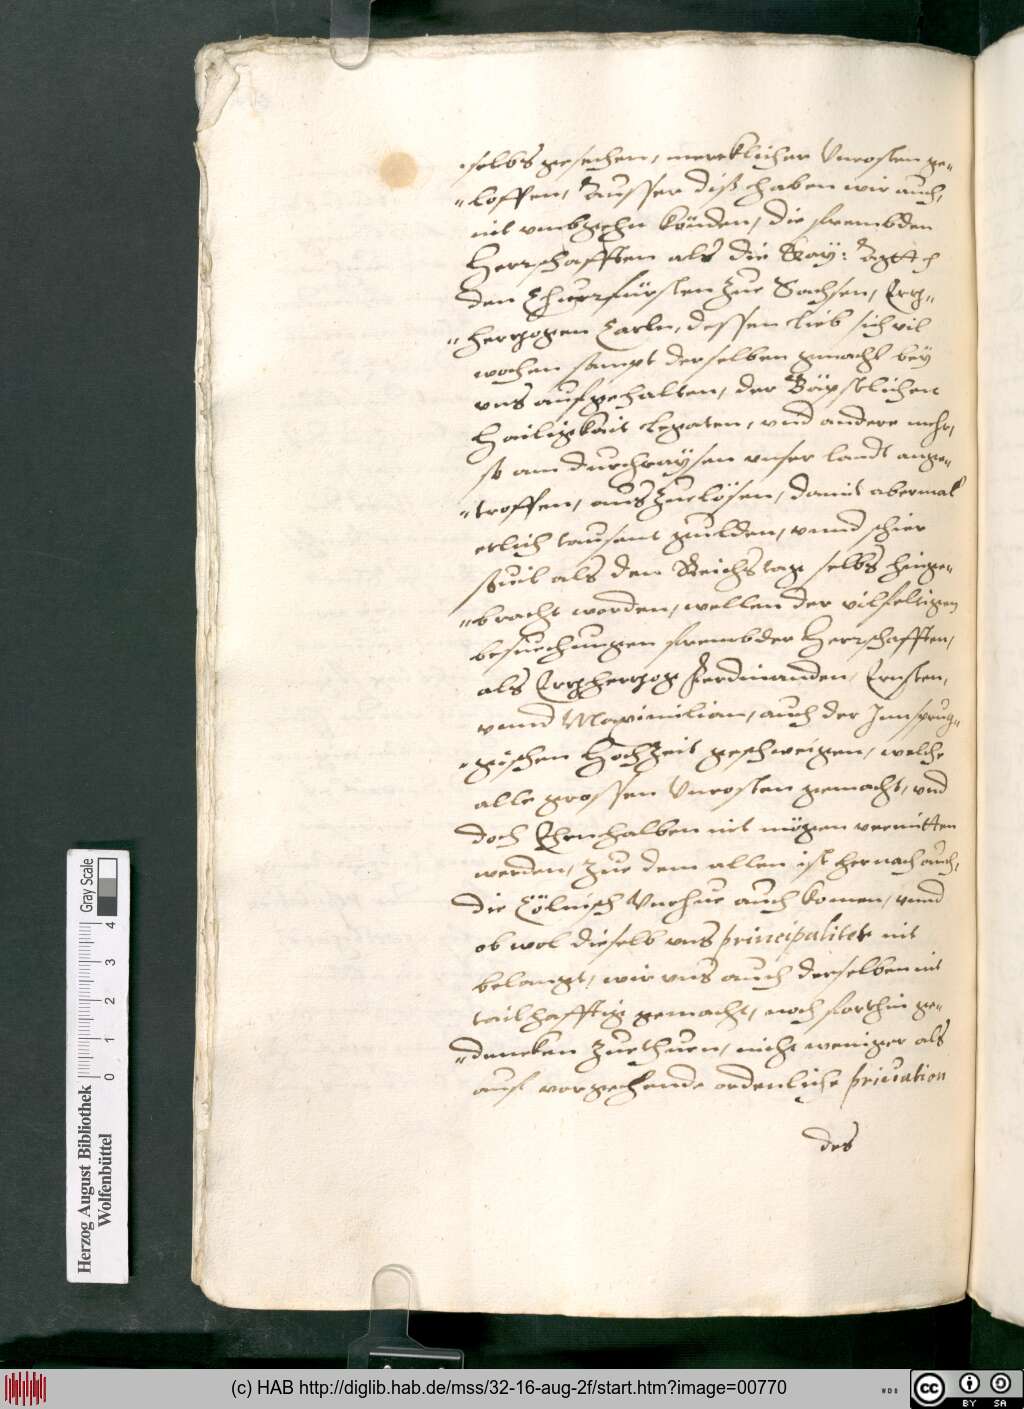 selbs gesechen, mercklicher Vncosten ge-
loffen, Ausser diß haben wir auch,
nit vmbgehn könden, die frembden
Herrschafften als die Kay: Mtt
den Churfürsten Zue Sachsen, Ertz-
hertzogen Carln, dessen Lieb sich vil
wochen sampt derselben gmachl bey
vns aufgehalten, der Bäpstlichen
Hailigkait Legaten, vnd andere mehr,
so am durchraysen vnser landt ange-
troffen, aus Zuelösen, damit abermal
etlich tausent gulden, vnnd schier
souil als den Reichstag selbs hinge-
bracht worden, wellen der vilfeltigen
besuechungen frembder Herrschafften,
als Ertzhertzog Ferdinanden, Ernsten,
vnnd Maximilian, auch der Jnnsprug-
gischen Hochzeit geschweigen, welche
alle grossen Vncosten gemacht, vnd
doch Ehrnhalben nit mögen vermitten
werden, Zue dem allen ist hernach auch,
die Cölnisch Vnrhue auch komen, vnnd
ob wol dieselb vns principaliter nit
belangt, wir vns auch derselben nit
tailhafftig gemacht, noch forthin ge-
dencken Zuethuen, nicht weniger als
auf vorgehende ordenliche priuation
des
Herzog August Bibliothek
Wolfenbüttel
Gray Scale
0 1 2 3 4
(c) HAB http://diglib.hab.de/mss/32-16-aug-2f/start.htm?image=00770
WDB
CC BY SA